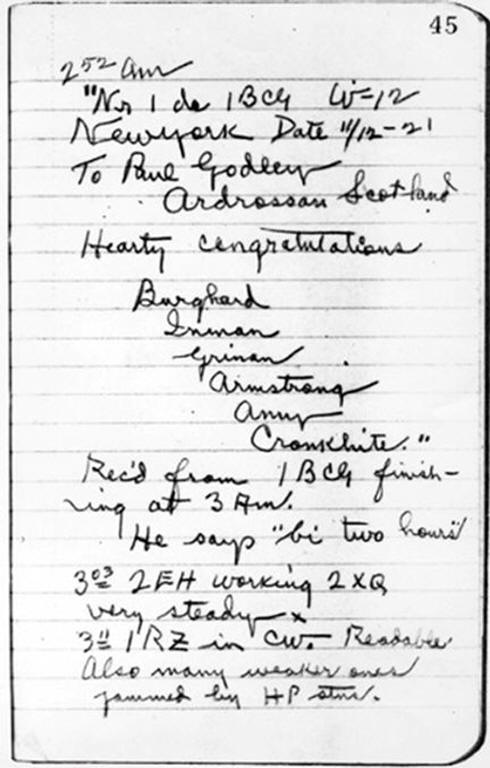 45
2 52 am
"Nr 1 de 1BCG W-12
New york Date 11/12-21
To Paul Godley
Ardrossan Scotland
Hearty congratulations
Burghard
Inman
Grinan
Armstrong
Amy
Cronkhite."
Rec'd from 1BCG finish-
ing at 3 Am.
He says "bi two hours"
3 03 2EH working 2XQ
very steady x
3 11 1RZ in CW. Readable
Also many weaker ones
jammed by HP stns.